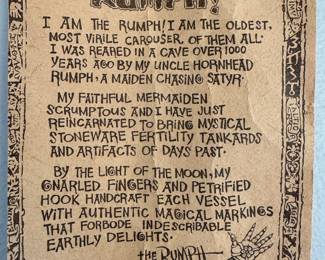 RUMPH!
I AM THE RUMPH! I AM THE OLDEST,
MOST VIRILE CAROUSER OF THEM ALL.
I WAS REARED IN A CAVE OVER 1000
YEARS AGO BY MY UNCLE HORNHEAD
RUMPH, A MAIDEN CHASING SATYR.
MY FAITHFUL MERMAIDEN
SCRUMPTOUS AND I HAVE JUST
REINCARNATED TO BRING MYSTICAL
STONEWARE FERTILITY TANKARDS
AND ARTIFACTS OF DAYS PAST.
BY THE LIGHT OF THE MOON, MY
GNARLED FINGERS AND PETRIFIED
HOOK HANDCRAFT EACH VESSEL
WITH AUTHENTIC MAGICAL MARKINGS
THAT FORBODE INDESCRIBABLE
EARTHLY DELIGHTS.
the RUMPH